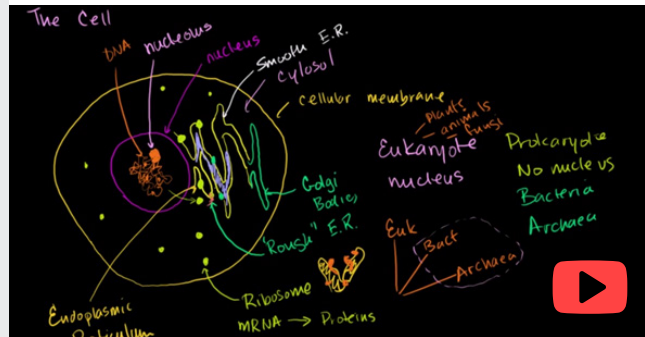 The Cell
DNA
nucleolus
nucleus
Smooth E.R.
Cytosol
cellular membrane
plants
animals
fungi
Eukaryote
nucleus
Prokaryote
No nucleus
Bacteria
Archaea
Golgi
Bodies
"Rough" E.R.
Euk
Bact
Archaea
Ribosome
mRNA → Proteins
Endoplasmic
Reticulum